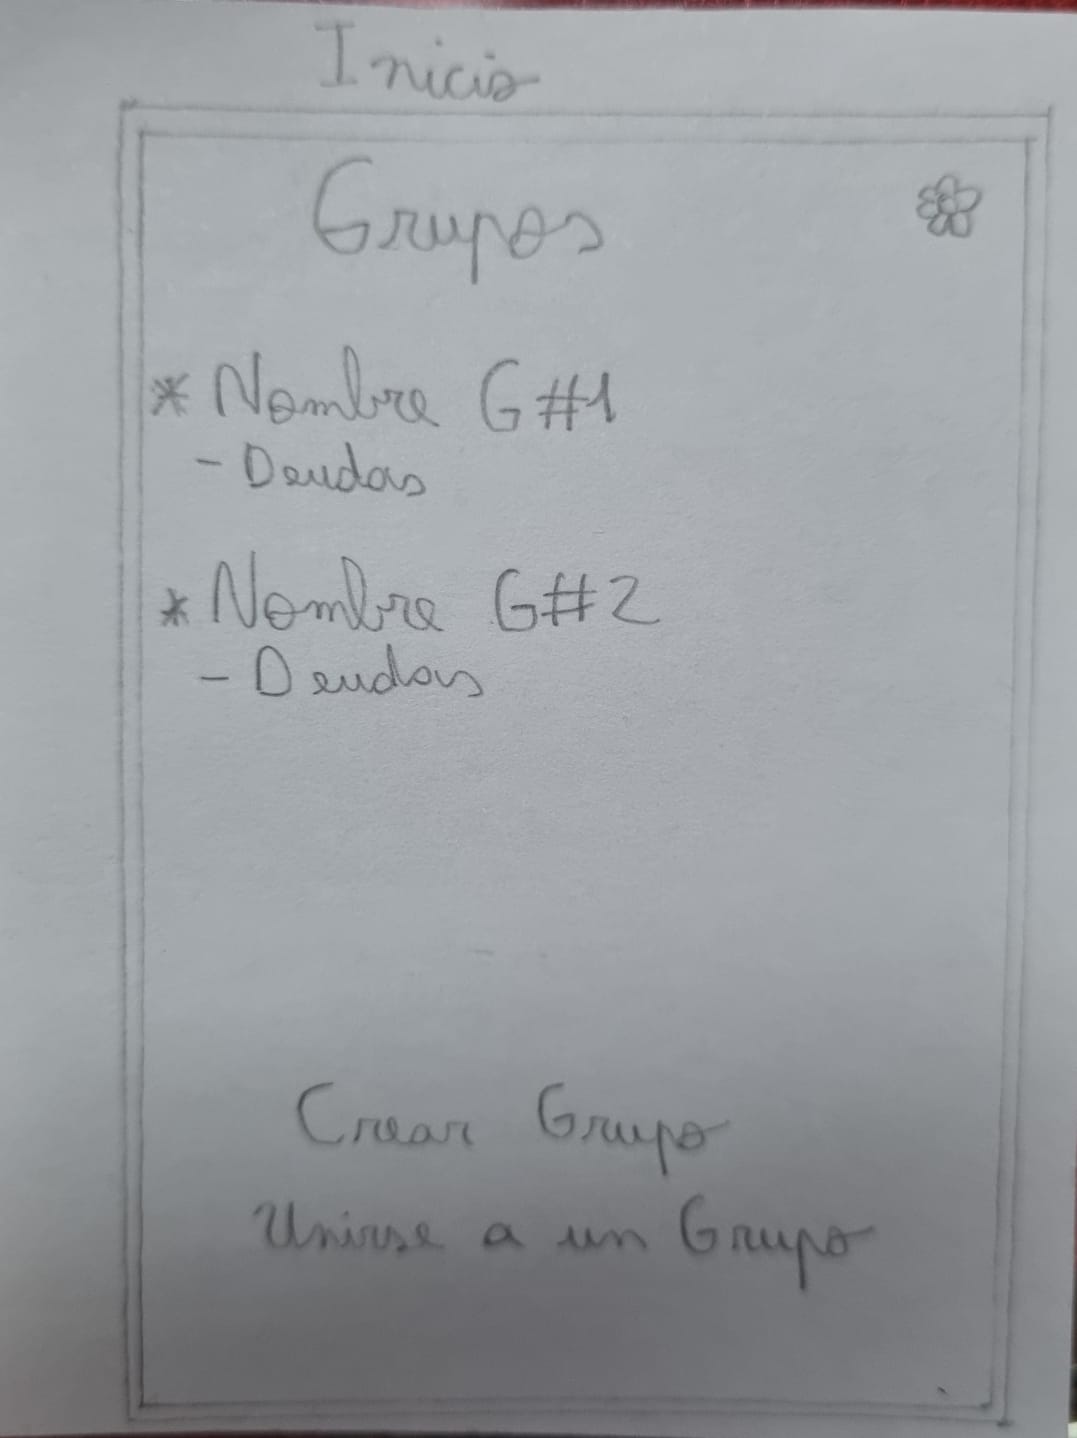 Inicio
Grupos
* Nombre G#1
- Deudas
* Nombre G#2
- Deudas
Crear Grupo
Unirse a un Grupo